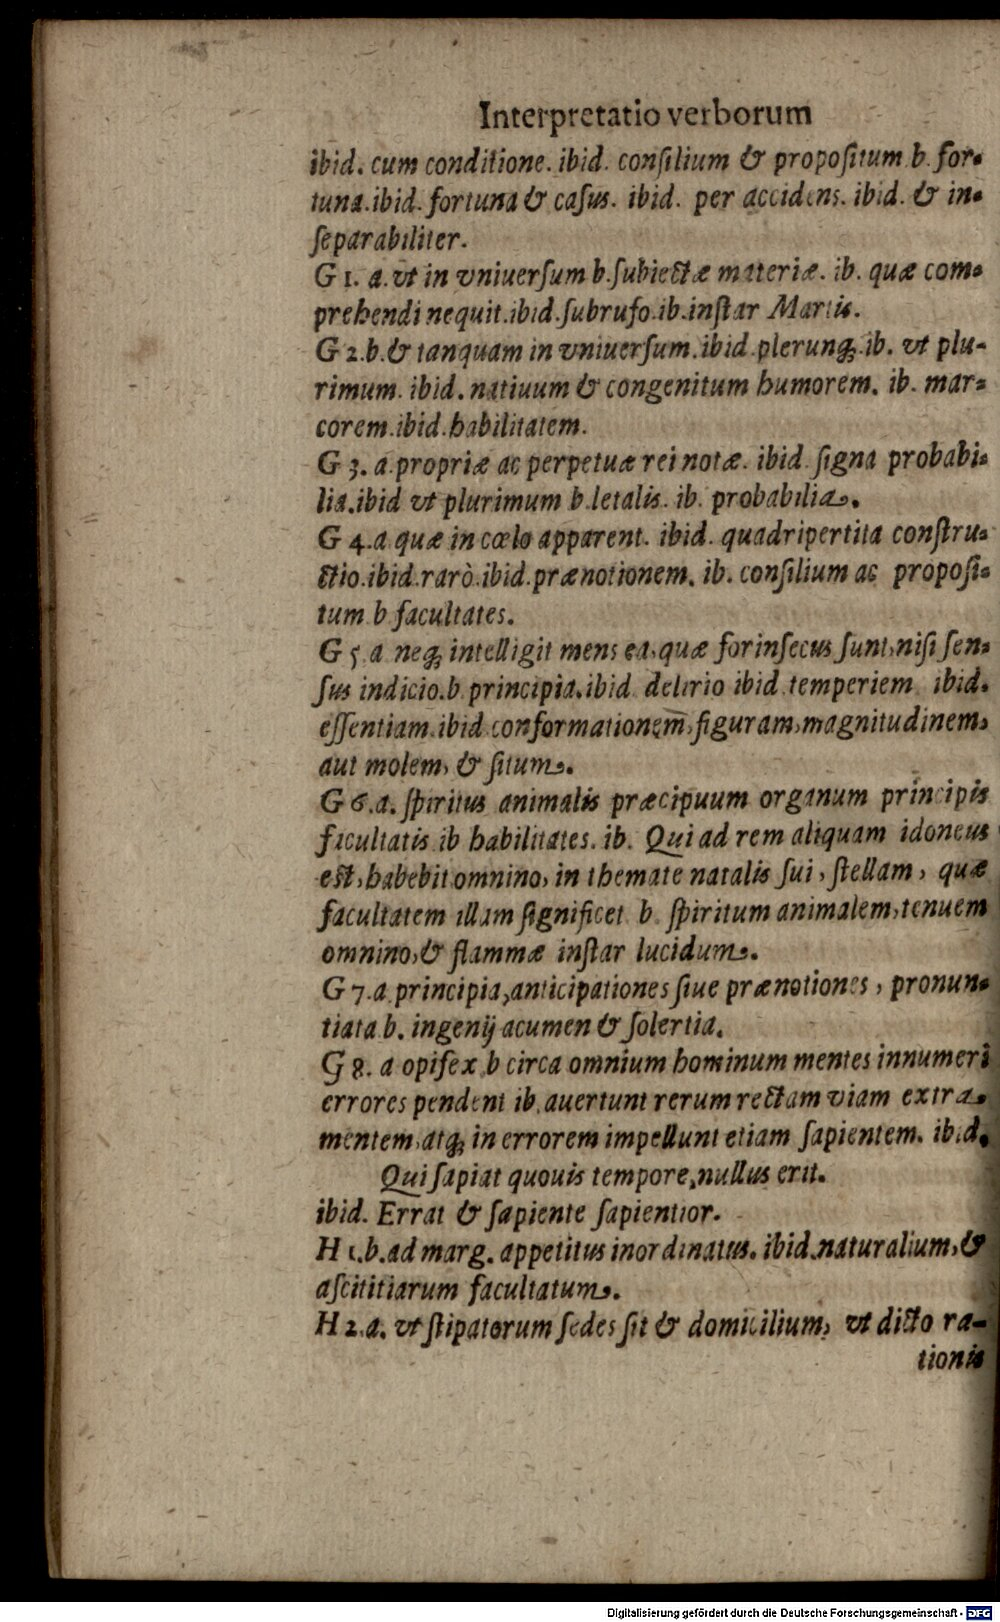 Interpretatio verborum
ibid. cum conditione. ibid. conſilium & propoſitum b. for-
tuna. ibid. fortuna & caſus. ibid. per accidens. ibid. & in-
ſeparabiliter.
G 1. a. vt in vniuerſum b. ſubiectæ materiæ. ib. quæ com-
prehendi nequit. ibid. ſubrufo. ib. inſtar Martis.
G 2. b. & tanquam in vniuerſum. ibid. plerunq;. ib. vt plu-
rimum. ibid. natiuum & congenitum humorem. ib. mar-
corem. ibid. habilitatem.
G 3. a. propriæ ac perpetuæ rei notæ. ibid. ſigna probabi-
lia. ibid vt plurimum b. letalis. ib. probabilia.
G 4. a quæ in cœlo apparent. ibid. quadripertita conſtru-
ctio. ibid. rarò. ibid. prænotionem. ib. conſilium ac propoſi-
tum b facultates.
G 5. a neq; intelligit mens ea, quæ forinſecus ſunt, niſi ſen-
ſus indicio. b. principia. ibid delirio ibid temperiem ibid.
eſſentiam. ibid conformationem, figuram, magnitudinem,
aut molem, & ſitum.
G 6. a. ſpiritus animalis præcipuum organum principis
facultatis ib habilitates. ib. Qui ad rem aliquam idoneus
est, habebit omnino, in themate natalis ſui, ſtellam, quæ
facultatem illam ſignificet b. ſpiritum animalem, tenuem
omnino, & flammæ inſtar lucidum.
G 7. a principia, anticipationes ſiue prænotiones, pronun-
tiata b. ingenij acumen & ſolertia.
G 8. a opifex b circa omnium hominum mentes innumeri
errores pendent ib. auertunt rerum rectam viam extra
mentem, atq; in errorem impellunt etiam ſapientem. ibid.
Qui ſapiat quouis tempore, nullus erit.
ibid. Errat & ſapiente ſapientior.
H 1. b. ad marg. appetitus inordinatus. ibid. naturalium, &
aſcititiarum facultatum.
H 2. a. vt ſtipatorum ſedes ſit & domicilium, vt dicto ra-
tionis
Digitalisierung gefördert durch die Deutsche Forschungsgemeinschaft - DFG